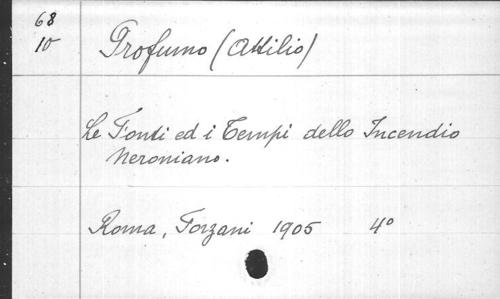 68
10
Profumo (Attilio)
Le Fonti ed i Tempi dello Incendio
Neroniano.
Roma, Forzani 1905 4º